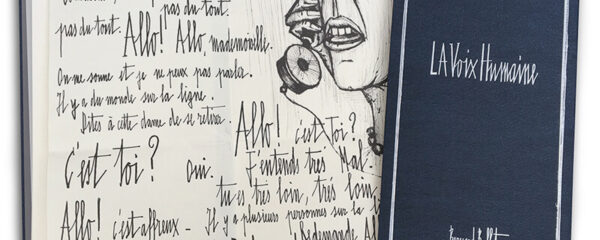 pas du tout.
pas du tout. Allo! Allo, mademoiselle.
On me sonne et je ne peux pas parler.
Il y a du monde sur la ligne.
Dites à cette dame de se retirer.
Allo! c'est Toi?
C'est toi? oui. J'entends très Mal.
tu es très loin, très loin,
Allo! c'est affreux - Il y a plusieurs personnes sur la
Redemande
LA Voix Humaine